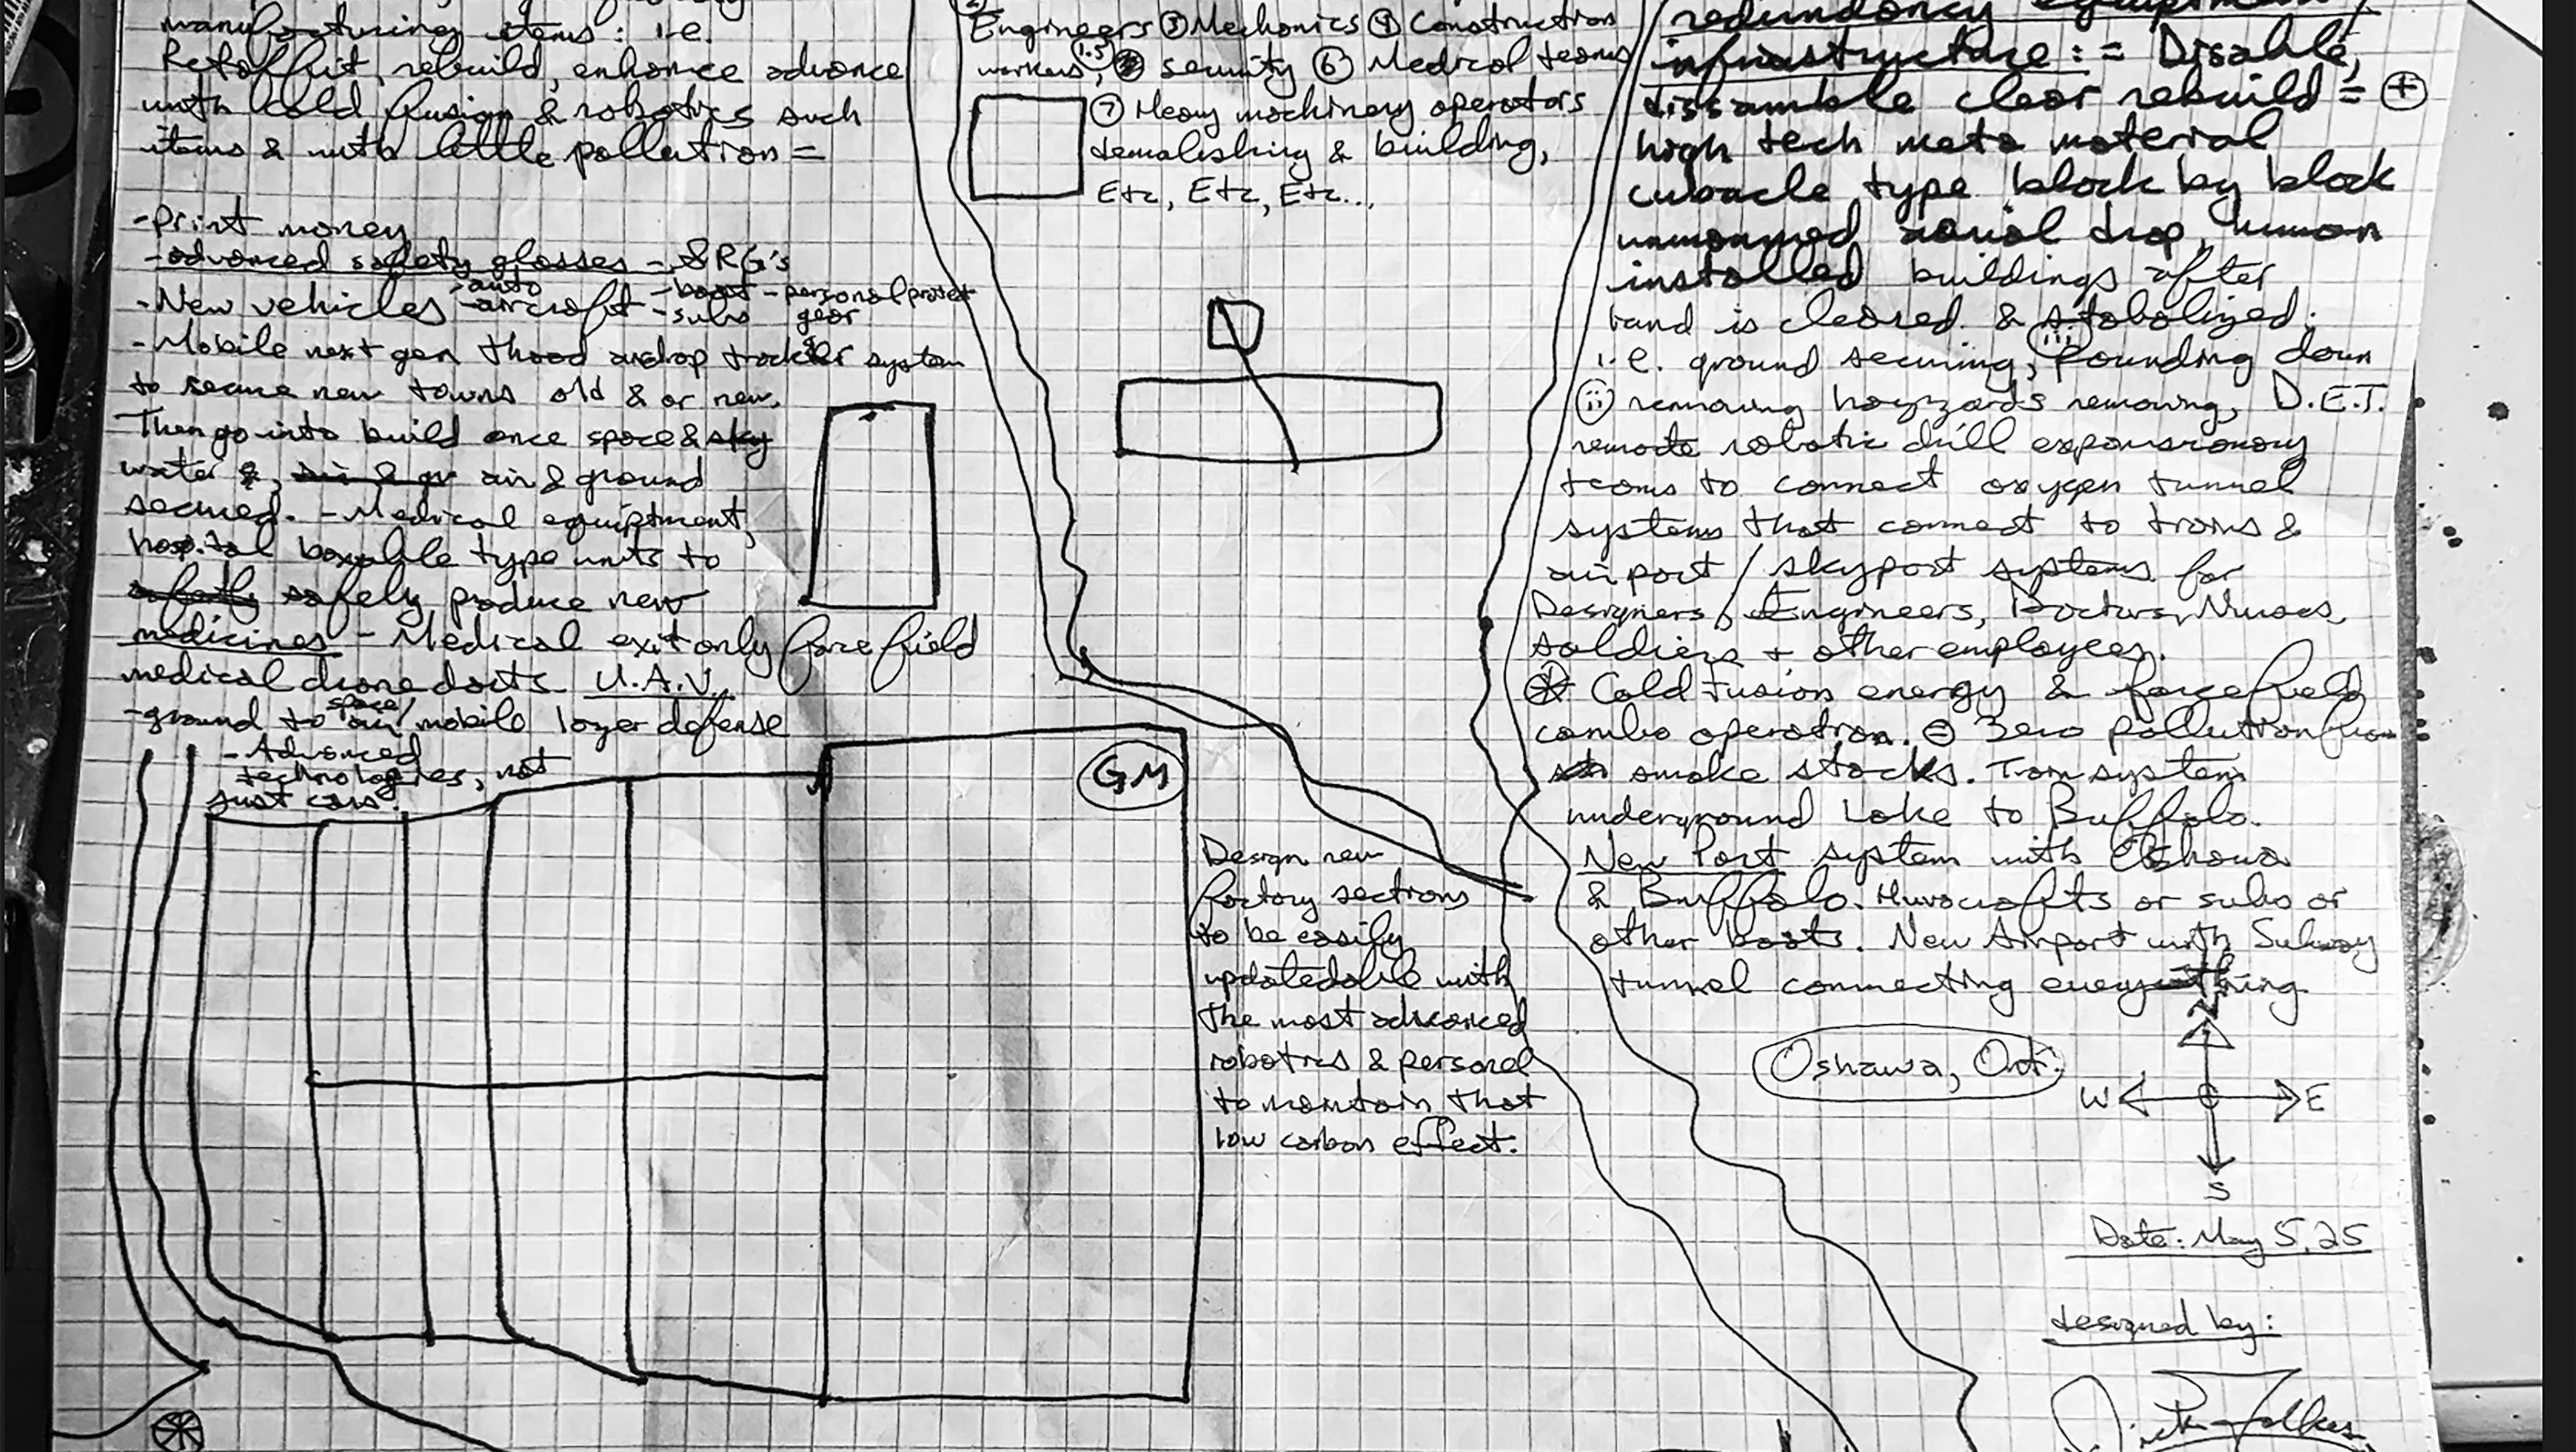 manufacturing items: i.e.
rebuild, enhance advance
with cold fusion & robotics such
items & with little pollution =
-Print money
-advanced safety glasses - SRG's
-New vehicles -auto -aircraft -boat -subs -personal protect gear
-Mobile next gen thaad airdrop system
to secure new towns old & or new.
Then go into build once space & sky
water &, air & ground
secured. -Medical equiptment,
hospital boxable type units to
safely produce new
medicines - Medical exit only forcefield
medical drone darts U.A.V.
-ground to space/air mobile layer defense
-Advanced
technologies, not
just cars.
Engineers ③ Mechanics ④ Construction
workers, 1.5 security ⑥ Medical teams
⑦ Heavy machinery operators
demolishing & building,
Etc, Etc, Etc...
GM
Design new
factory sections
to be easily
updatedable with
the most advanced
robotics & personel
to maintain that
low carbon effect.
redundancy equiptment/
infrastructure: = Disable,
dissamble clear rebuild = +
high tech meta material
cubacle type block by block
unmanned aerial drop, human
installed buildings after
land is cleared & stabolized.
i.e. ground securing, (iii) Pounding down
(ii) removing hayzards removing, D.E.T.
remote robotic drill expansionary
teams to connect oxygen tunnel
systems that connect to trams &
airport / skyport systems for
Designers, Engineers, Doctors, Nurses,
soldiers + other employees.
Cold Fusion energy & forcefield
combo operation. = Zero pollution from
smoke stacks. Tram system
underground Lake to Buffalo.
New Port system with Oshawa
& Buffalo. Huvocrafts or subs or
other boats. New Airport with Subway
tunnel connecting everything.
Oshawa, Ont.
N
W E
S
Date: May 5, 25
designed by: